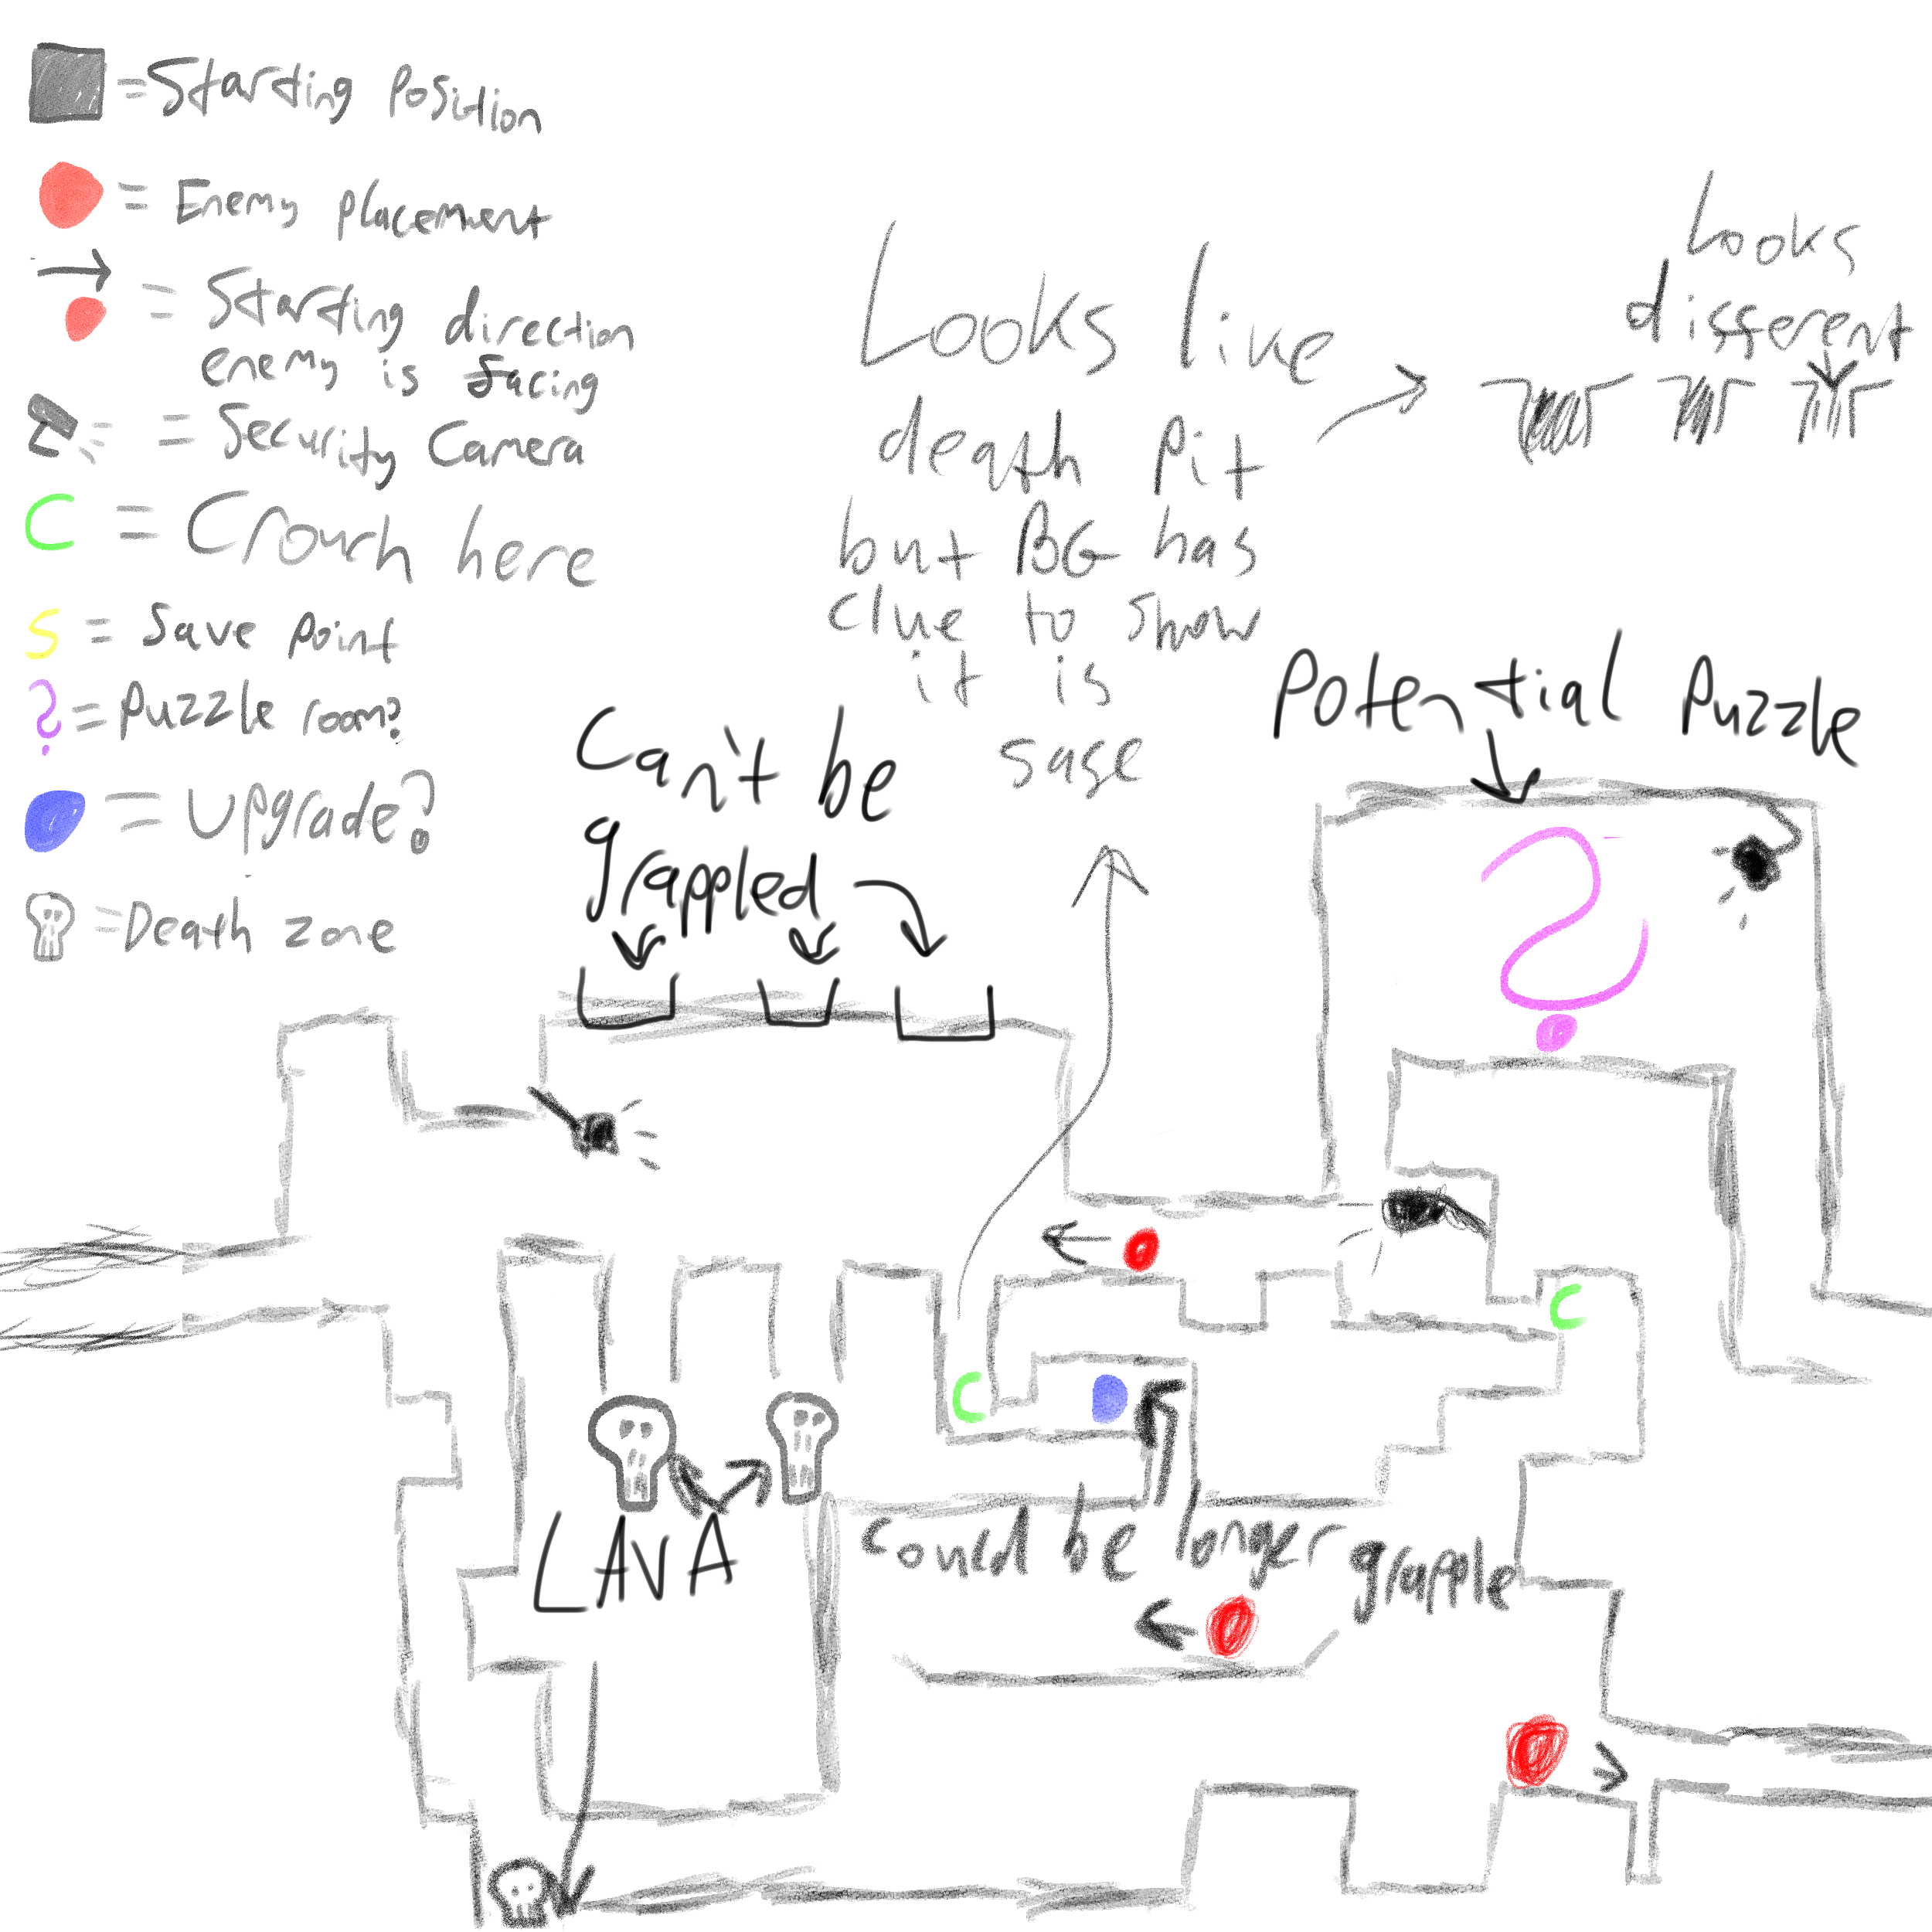 = Starting Position
= Enemy placement
= Starting direction
enemy is facing
= Security Camera
C = Crouch here
S = Save point
? = Puzzle room?
= Upgrade?
= Death zone
Looks like
death pit
but BG has
clue to show
it is
safe
Looks
different
Can't be
grappled
Potential Puzzle
?
C
C
LAVA
could be longer grapple